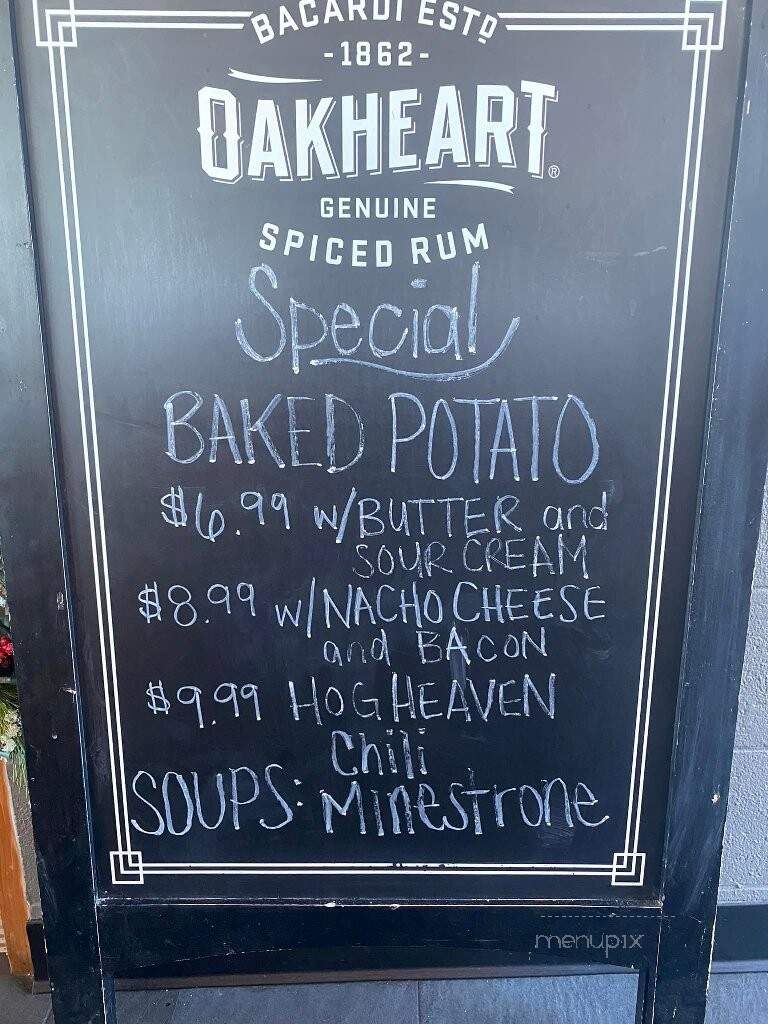 BACARDI ESTD
-1862-
OAKHEART®
GENUINE
SPICED RUM
Special
BAKED POTATO
$6.99 w/BUTTER and
SOUR CREAM
$8.99 w/NACHO CHEESE
and BACON
$9.99 HOG HEAVEN
Chili
SOUPS: Minestrone
menupix